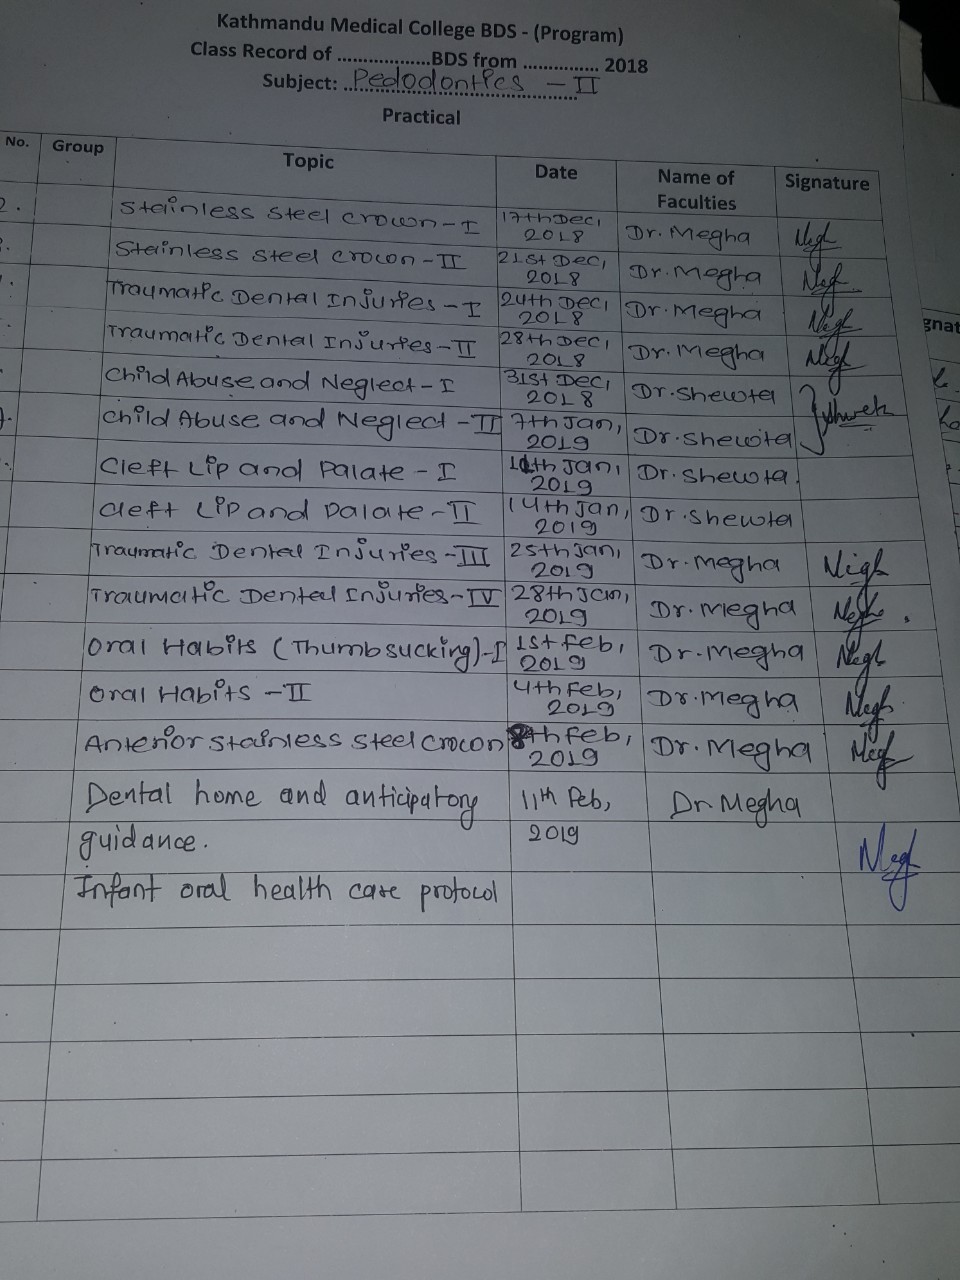 Kathmandu Medical College BDS - (Program)
Class Record of ..................BDS from ............... 2018
Subject: Pedodontics - II
Practical
No. Group Topic Date Name of Faculties Signature
2. Stainless Steel Crown - I 17th Dec, 2018 Dr. Megha
Stainless Steel Crown - II 21st Dec, 2018 Dr. Megha
Traumatic Dental Injuries - I 24th Dec, 2018 Dr. Megha
Traumatic Dental Injuries - II 28th Dec, 2018 Dr. Megha
Child Abuse and Neglect - I 31st Dec, 2018 Dr. Shewta
Child Abuse and Neglect - II 7th Jan, 2019 Dr. Shewta
Cleft Lip and Palate - I Jan, 2019 Dr. Shewta
Cleft Lip and Palate - II 14th Jan, 2019 Dr. Shewta
Traumatic Dental Injuries - III 25th Jan, 2019 Dr. Megha
Traumatic Dental Injuries - IV 28th Jan, 2019 Dr. Megha
Oral Habits (Thumbsucking) - I 1st Feb, 2019 Dr. Megha
Oral Habits - II 4th Feb, 2019 Dr. Megha
Anterior Stainless Steel Crown 8th Feb, 2019 Dr. Megha
Dental home and anticipatory 11th Feb, Dr Megha
guidance. 2019
Infant oral health care protocol